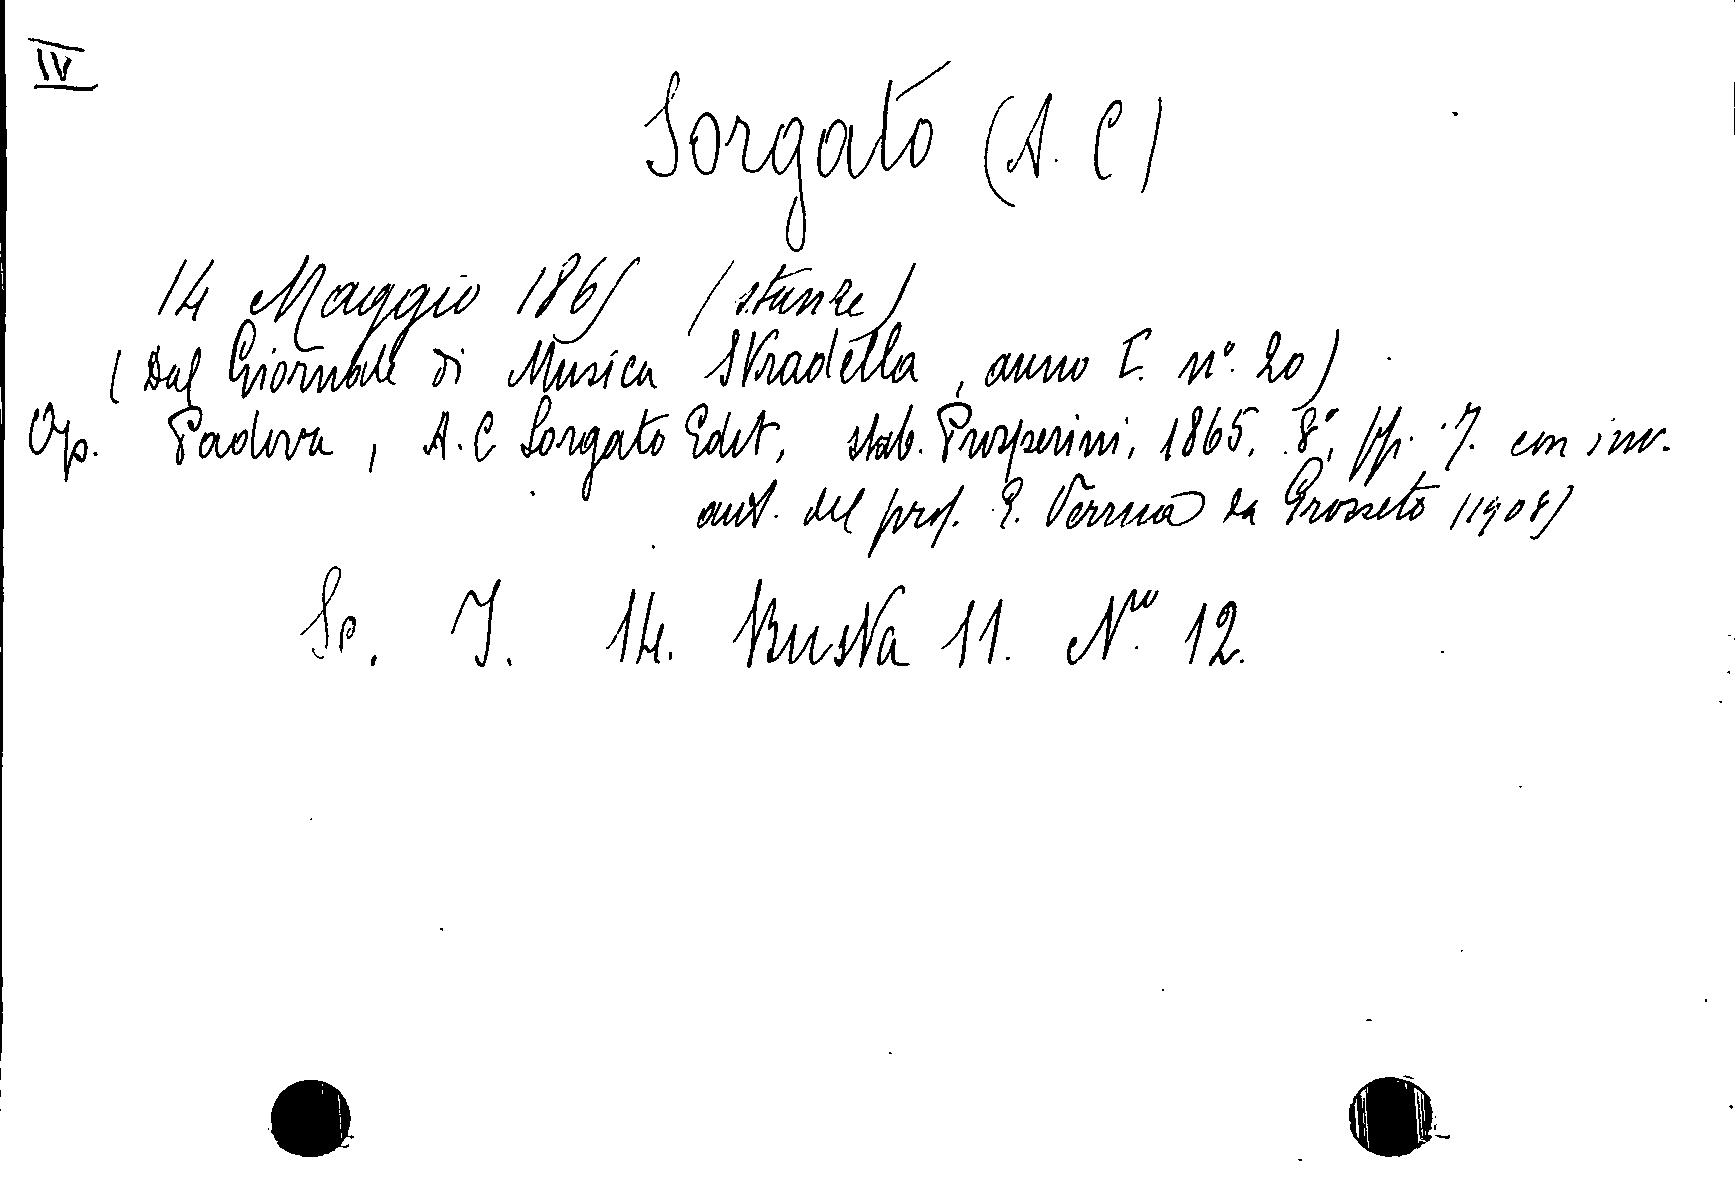 IV
Sorgato (A. C)
14 Maggio 1865 (stanze)
(Dal Giornale di Musica Stradella, anno I. n.º 20)
Op. Padova, A. C Sorgato Edit, stab. Prosperini, 1865. 8º, pp. 7. con inv.
aut. del prof. E. Verrua da Grosseto (1908)
Sc. I. 14. Busta 11. Nro 12.